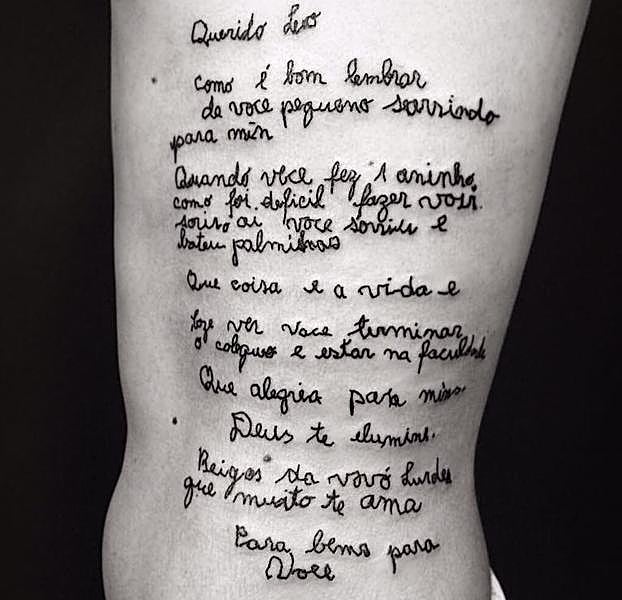 Querido Leo
como é bom lembrar
de voce pequeno sorrindo
para min
Quando voce fez 1 aninho
como foi deficil fazer voir
sorir ai voce sorriu e
bateu palminhas
Que coisa e a vida e
hoze ver voce terminar
o colegueo e estar na faculdade
Que alegria para mins
Deus te elumine.
Beigos da vovó Lurdes
que muito te ama
Para bems para
Voce